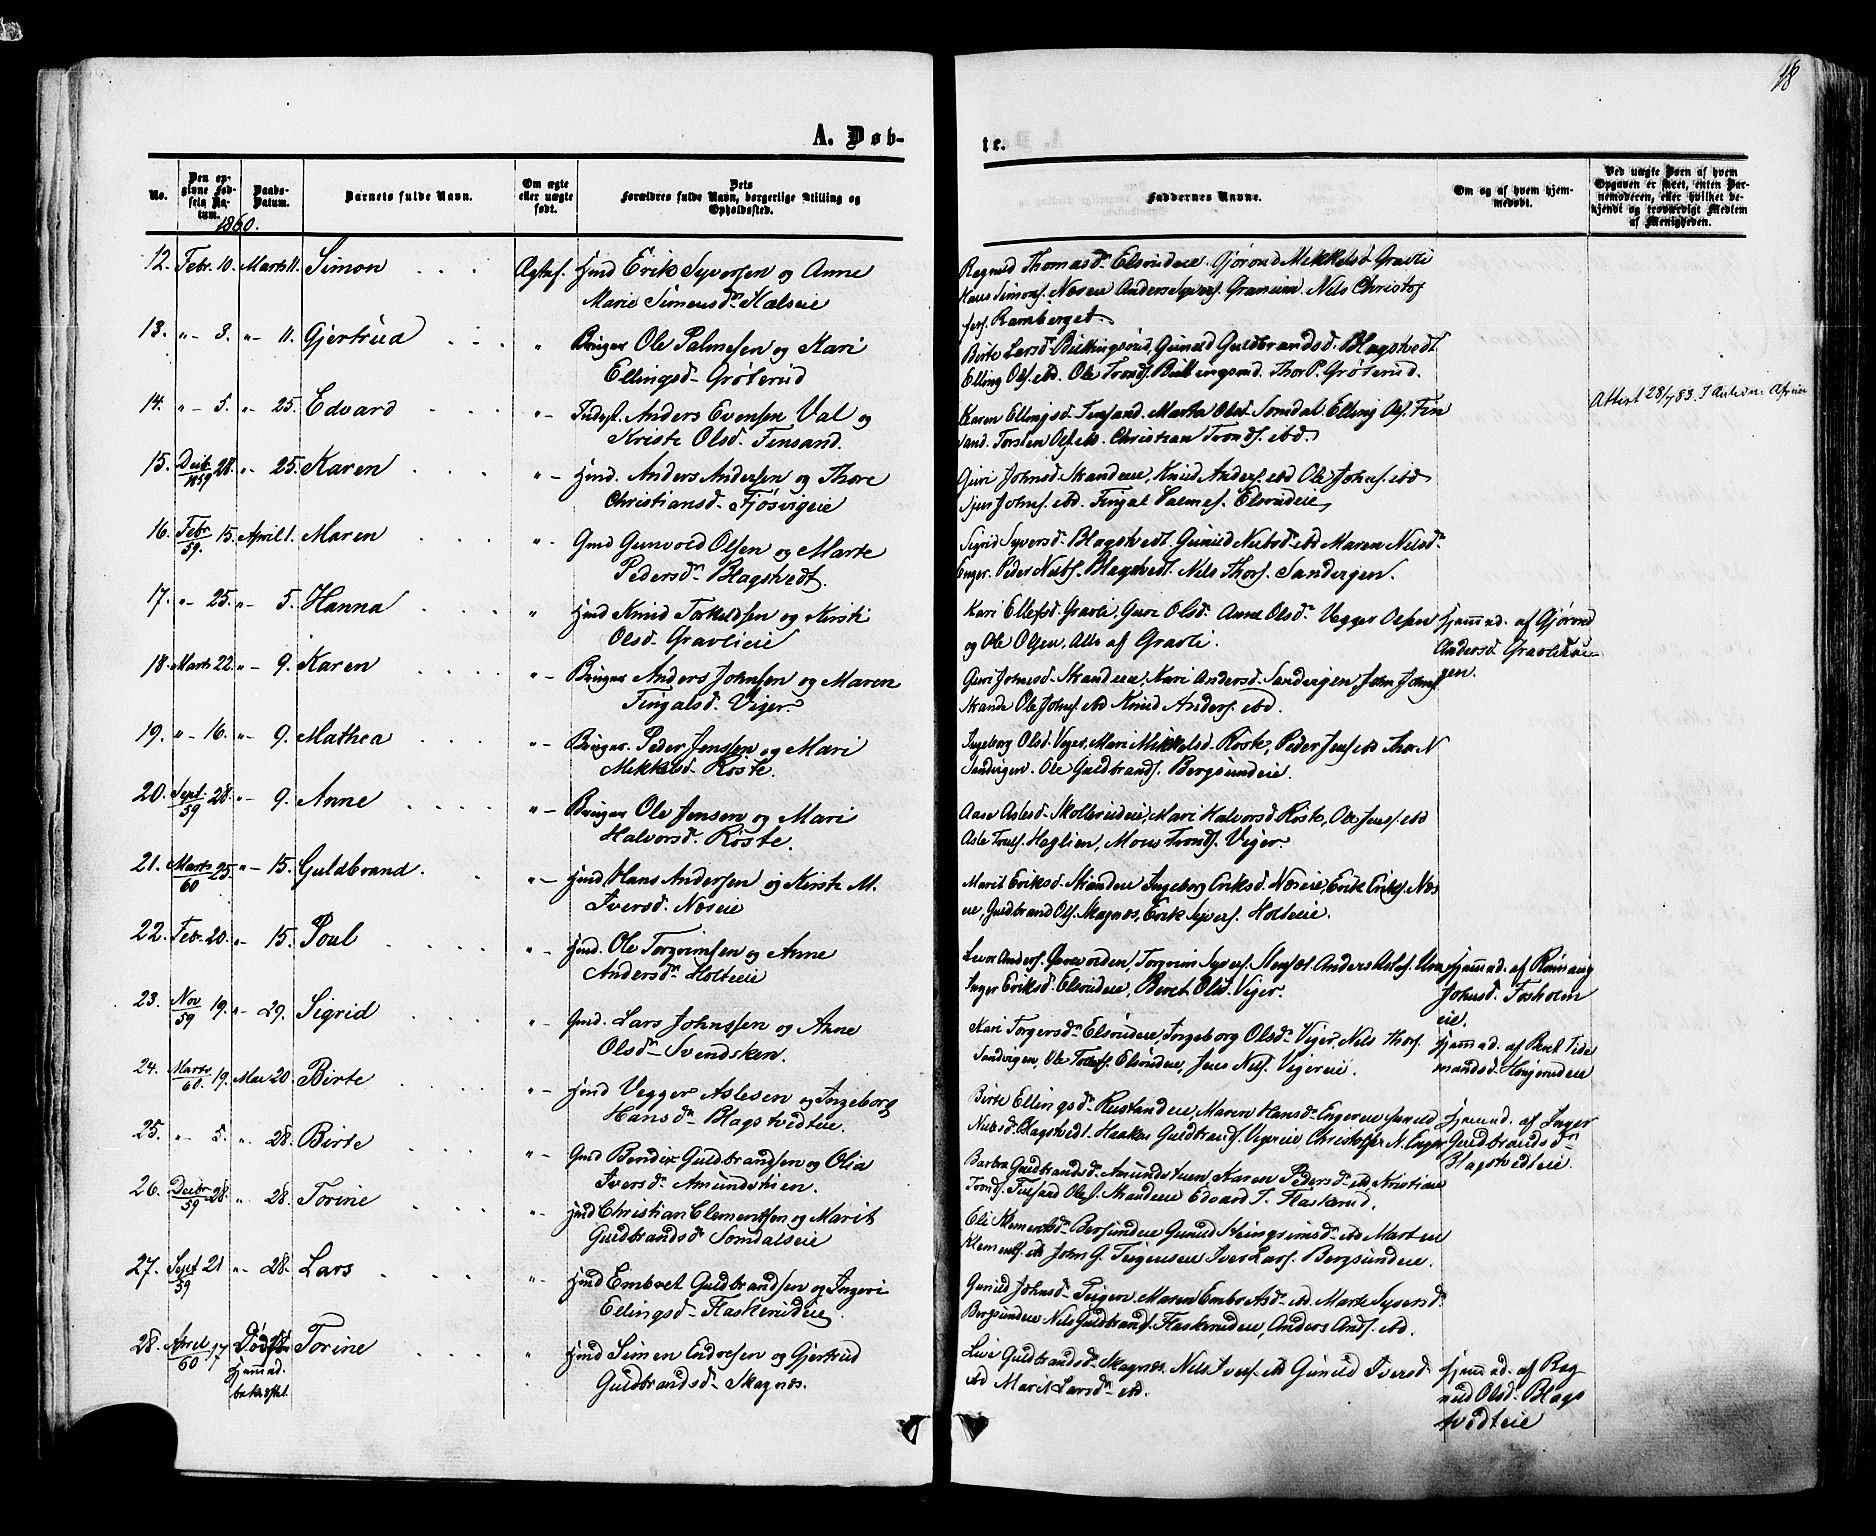 18
A. Døb-
te.
No.
Den opgivne Fødsels Datum.
Daabs-Datum.
Barnets fulde Navn.
Om ægte eller uægte født.
Dets Forældres fulde Navn, borgerlige Stilling og Opholdssted.
Faddernes Navne.
Om og af hvem hjemmedøbt.
Ved uægte Børn af hvem Opgaven er skeet, enten Barnemoderen, eller hvilket bekjendt og troværdigt Medlem af Menigheden.
1860.
12. Febr. 10. Marts 11. Simon Ægtef. Hmd Erik Syversen og Anne
Marie Simensdn Halseie
Ragnild Thomasdn Elsrudeie. Gjørond Mikkelsd. Gravli
Hans Simons. Næseie Anders Syvers. Grameien. Nils Christof
fers. Ramberget.
13. " - 3. " - 11. Gjertrud " Bruger Ole Palmesen og Kari
Ellingsd. Grøterud
Birte Larsd. Buttingsrud, Gunild Guldbrandsd. Blagstvedt
Elling Ols. ibd. Ole Tronds. Buttingsrud. Thor P. Grøterud.
14. " - 5. " - 25. Edvard " - Indyst. Anders Evensen Val og
Kristi Olsd. Finsand.
Karen Ellingsd. Finsand. Marta Olsd. Somdal Elling Ols. Fin
sand. Torsten Ols. ibd. Christian Tronds. ibd.
Attest 28/7 83.
15. Decb. 1859 28. " - 25. Karen " - Hmd. Anders Andersen og Thore
Christiansd. Fjøsvigeie
Guri Johnsd. Skandeie, Knud Anders. ibd Ole Johns. ibd
Johns. ibd. Fingal Palmes. Elsrudeie,
16. Febr 59. 15. April 1. Maren " - Gmd Gunvold Olsen og Marte
Pedersdn Blagstvedt.
Sigrid Syversd. Blagstvedt. Gunild Nilsdn ibd Maren Nilsdn
Enger. Peder Nils. Blagstvedt. Nils Thors. Sandvigen.
17. " - 25. " - 5. Hanna " Hmd Knud Torkildsen og Kirsti
Olsd. Gravlieie
Kari Ellefsd. Gravli, Guri Olsd. Anne Olsdn Vegger Olsen
og Ole Olsen, Alle af Gravli.
Hjemmed. af Gjørond
Andersd. Gravlihau-
gen.
18. Marts 22. " - 9. Karen " - Bruger Anders Johnsen og Maren
Fingalsd. Viger.
Guri Johnsd. Skandeie, Kari Andersd. Sandvigen, John Johns.
Skande Ole Johns. ibd Knud Anders. ibd.
19. " - 16. " - 9. Mathea " - Bruger. Peder Jenssen og Mari
Mikkelsd. Røste.
Ingeborg Olsd. Viger, Mari Mikkelsd. Røste, Peder Jens. ibd Thor N
Sandvigen. Ole Guldbrands. Bergsundeie.
20. Sept. 59 28. " - 9. Anne " - Bruger Ole Jensen og Mari
Halvorsd. Røste.
Aase Aslesd. Skolbrudeie, Mari Halvorsd Røste, Ole Jens. ibd
Asle Truls. Haglien, Mons Tronds. Viger.
21. Marts 60 25. " - 15. Guldbrand. " - Hmd Hans Andersen og Kirste M.
Iversd. Næseie
Marit Eriksd. Skandeie Ingeborg Eriksd. Næseie, Erik Eriks. Næs
eie, Guldbrand Ols. Skagnæs, Erik Syvers. Holteie.
22. Febr. 20. " - 15. Poul " - Hmd. Ole Torgrimsen og Anne
Andersdn Holteie
Anders. Torgrim Syvers. Anders Aslefs.
Inger Eriksd. Elsrudeie, Beret Olsd. Viger.
Hjemmed. af Rønnaug
Johnsd. Fosholm
eie.
23. Nov 59 19. " - 29. Sigrid " - Gmd. Lars Johnssen og Anne
Olsdn Svendsken.
Kari Torgersdn Elsrudeie, Ingeborg Olsdn Viger, Nils Thors.
Sandvigen, Ole Elsrudeie, Jens Nils. Vigereie.
Hjemmed. af Beret Tide
mandsd. Haugerudeie
24. Marts 60. 19. Mai 20. Birte " - Hmd Vegger Aslesen og Ingeborg
Hansdn Blagstvedteie.
Birte Ellingsd. Rustandeie, Maren Hansdn Engereie Gunild
Nilsd. Blagstvedt. Haaken Guldbrands. Vigereie Christoffer N. Enger
Hjemmed. af Inger
Guldbrandsdn
Blagstvedteie.
25. " - 5. " 28. Birte " - Gmd Bendix Guldbrandsen og Olia
Iversdn Amundstuen.
Barbra Guldbrandsd. Amundstuen Karen Pedersdn ibd Kristiane
Tronds. Finsand Ole Skandeie Edvard T. Flaskerud.
26. Decbr 59 28. " 28. Torine " - Hmd Christian Clementsen og Marit
Guldbrandsdn Somdalseie
Eli Klementsd. Bersundeie Gunild Steingrimsdn ibd Marten
Klements. ibd John G. Teigeneie Iver Lars. Bergsundeie.
27. Sept 59 21 " - 28. Lars " - Hmd Embret Guldbrandsen og Ingeri
Ellingsdn Flaskerudeie
Gunild Johnsd. Teigen, Maren Embretsdn ibd. Marte Syversdn
Bergsundeie Nils Guldbrands. Flaskerudeie, Anders Ands. ibd.
28. April 60 17 Torine " Hmd Simen Endresen og Gjertrud
Guldbrandsdn Skagnæs.
Hjemmed.
bekræftet.
Live Guldbrandsdn Skagnæs. Nils Ivers. ibd Gunild Iversd
ibd Marit Larsdn ibd.
Hjemmed. af Rag
nild Olsd. Blags
tvedteie